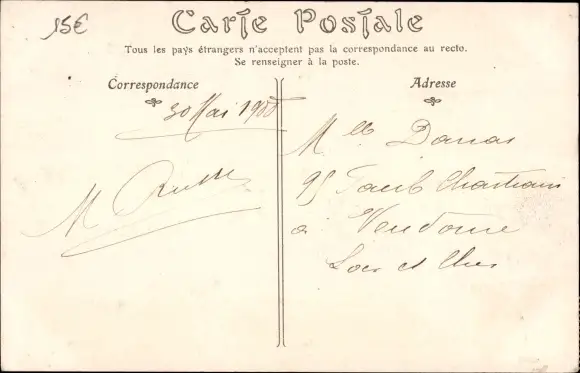 15€
Carte Postale
Tous les pays étrangers n'acceptent pas la correspondance au recto.
Se renseigner à la poste.
Correspondance
Adresse
30 Mai
M
Mlle
95 Faub Chartrain
à Vendome
Loir et Cher